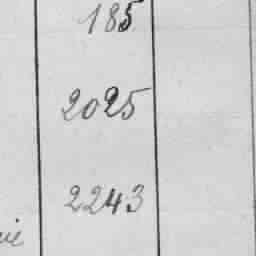 185
2025
2243